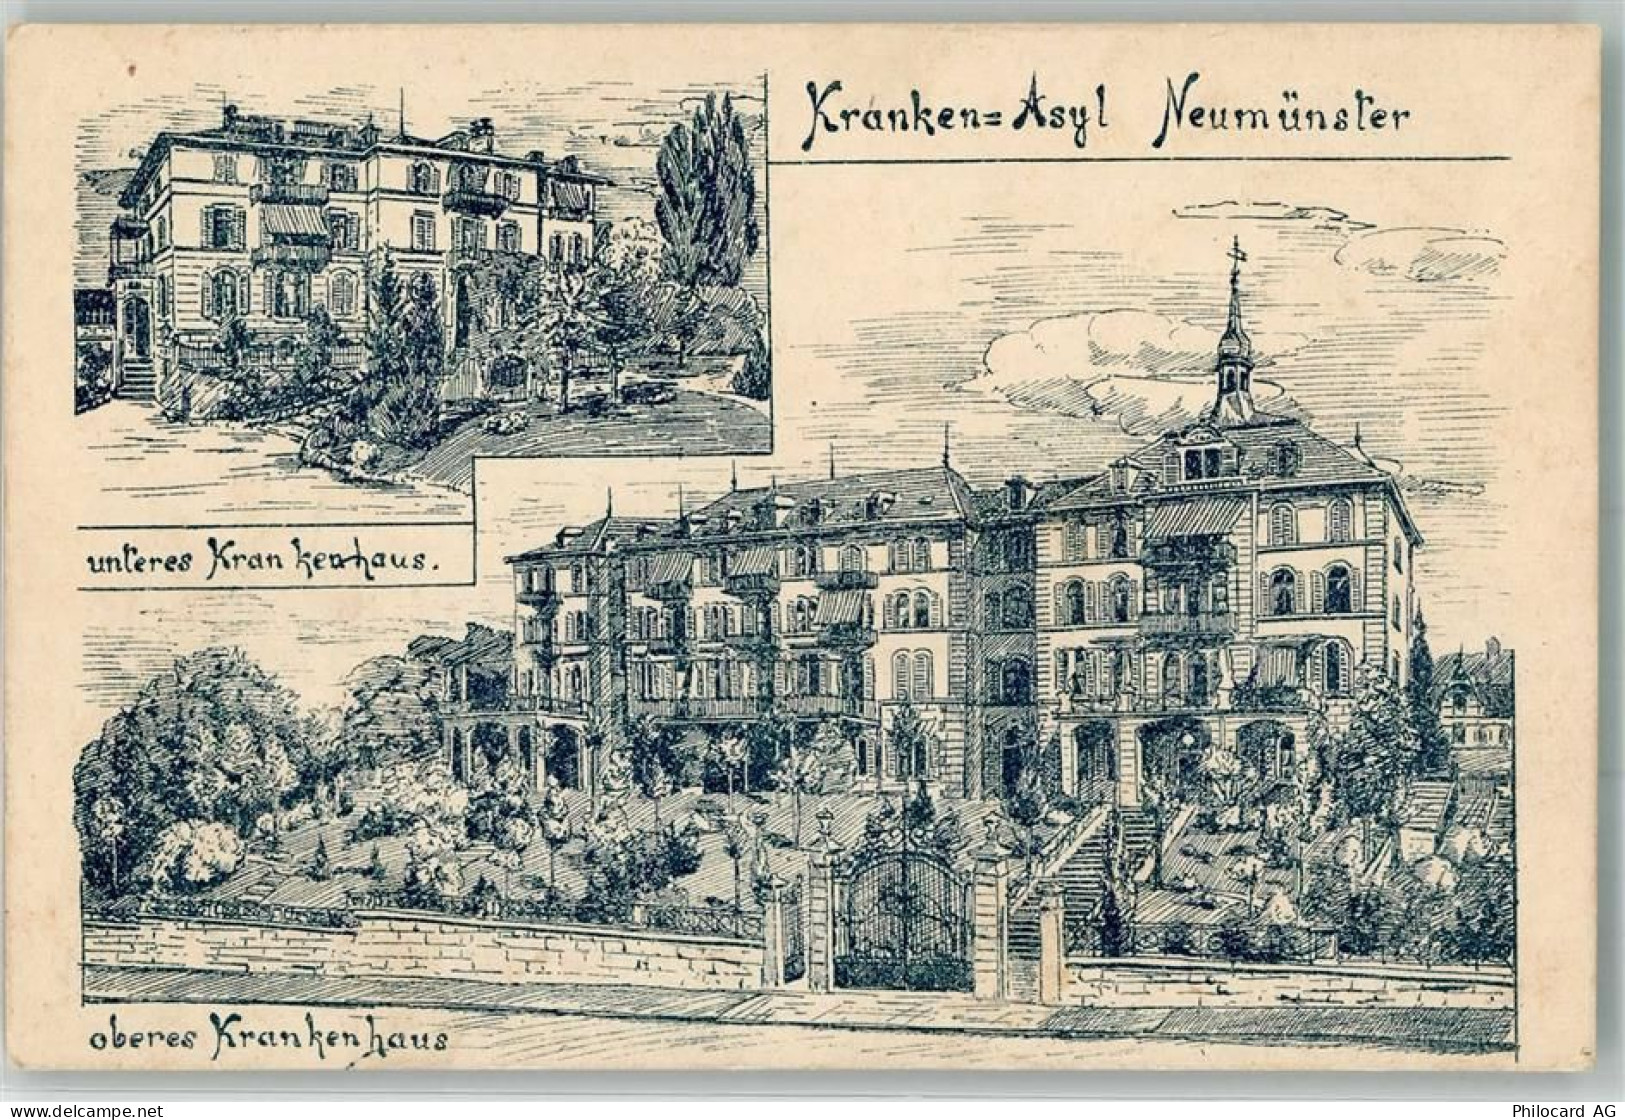 Kranken=Asyl Neumünster
unteres Krankenhaus.
oberes Krankenhaus
www.delcampe.net
philocard
Philocard AG